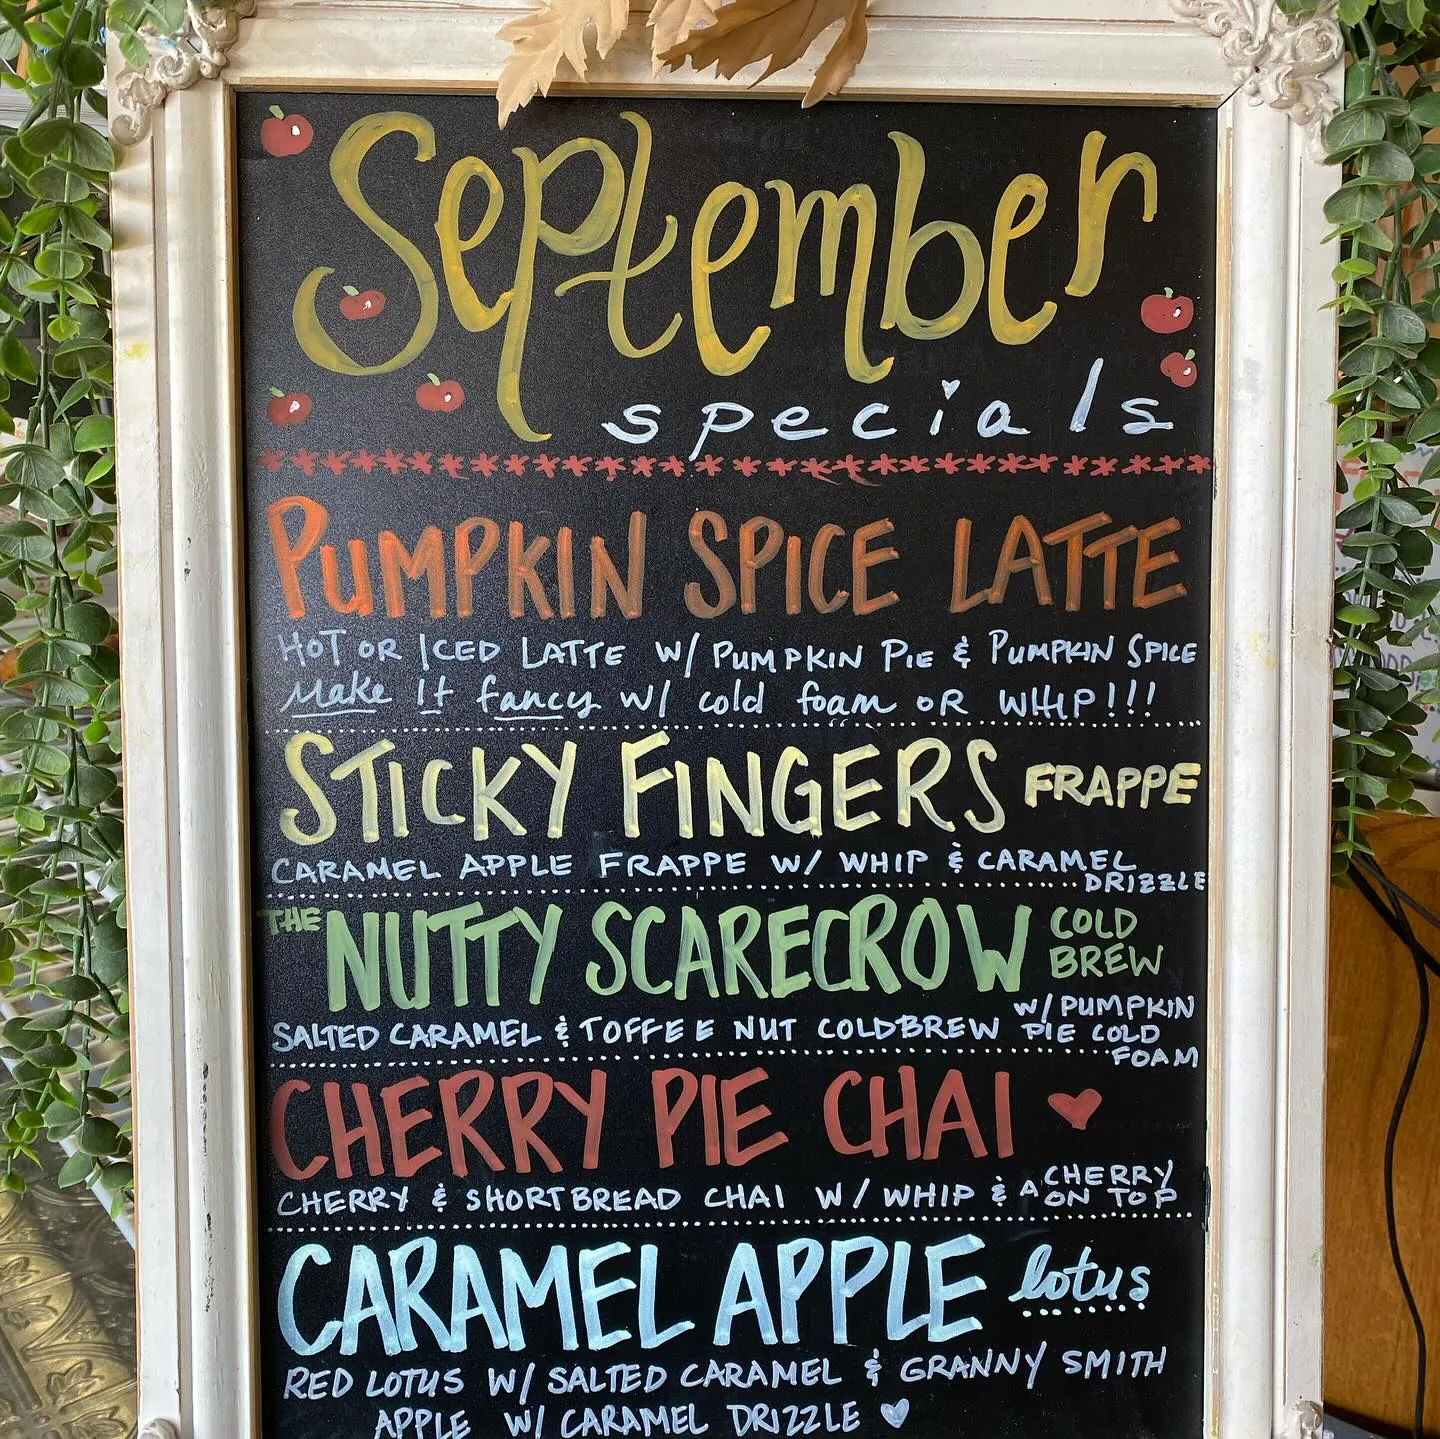 September
specials
PUMPKIN SPICE LATTE
HOT OR ICED LATTE W/ PUMPKIN PIE & PUMPKIN SPICE
Make It fancy w/ cold foam OR WHIP!!!
STICKY FINGERS FRAPPE
CARAMEL APPLE FRAPPE W/ WHIP & CARAMEL
DRIZZLE
THE NUTTY SCARECROW COLD
BREW
SALTED CARAMEL & TOFFEE NUT COLDBREW W/ PUMPKIN
PIE COLD
FOAM
CHERRY PIE CHAI
CHERRY & SHORTBREAD CHAI W/ WHIP & A CHERRY
ON TOP
CARAMEL APPLE lotus
RED LOTUS W/ SALTED CARAMEL & GRANNY SMITH
APPLE W/ CARAMEL DRIZZLE